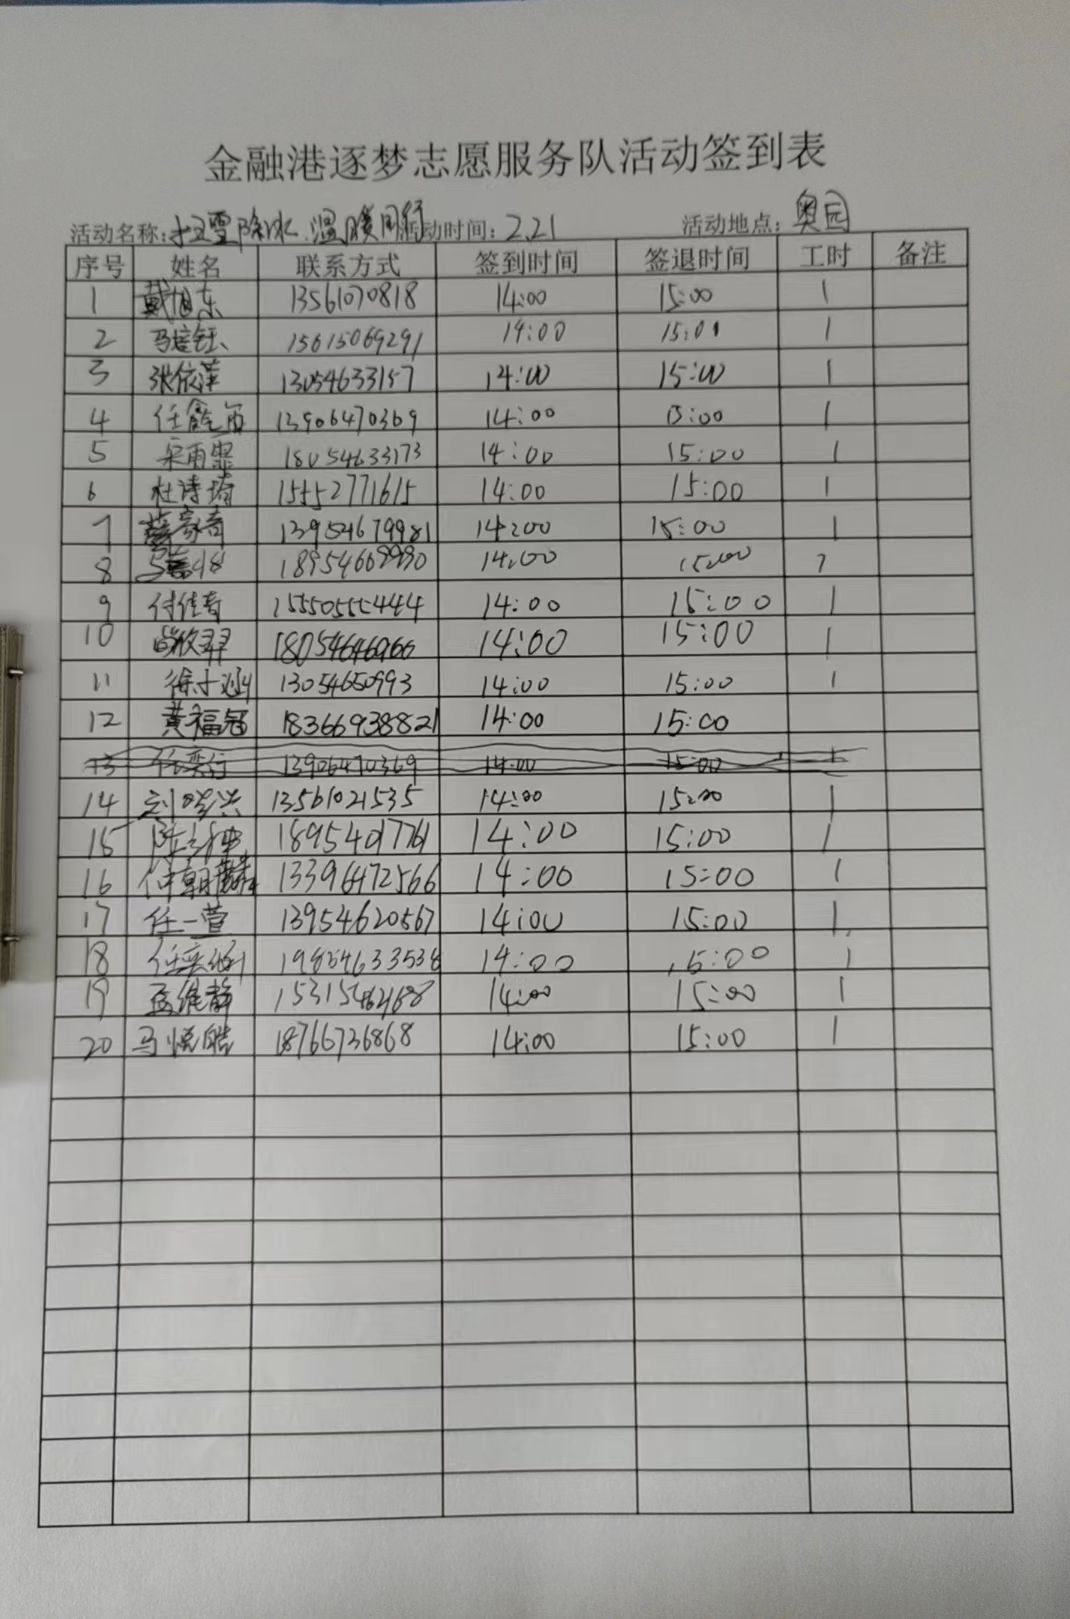 金融港逐梦志愿服务队活动签到表
活动名称:扫雪除冰、温暖同行 活动时间:2.21 活动地点:奥园
序号 姓名 联系方式 签到时间 签退时间 工时 备注
1 戴旭东 13561070818 14:00 15:00 1
2 15615069291 14:00 15:00 1
3 张依萍 13054633157 14:00 15:00 1
4 13906470369 14:00 15:00 1
5 18054633173 14:00 15:00 1
6 杜诗琦 15552771615 14:00 15:00 1
7 13954679981 14:00 15:00 1
8 14:00 15:00 1
9 付佳奇 15550555444 14:00 15:00 1
10 14:00 15:00 1
11 徐子涵 13054650993 14:00 15:00 1
12 黄福冠 18366938821 14:00 15:00
13 13906470369 14:00 15:00 1
14 13561021535 14:00 15:00 1
15 18954017761 14:00 15:00 1
16 仲朝麟 13396472566 14:00 15:00 1
17 任一萱 13954620567 14:00 15:00 1
18 14:00 15:00 1
19 孟维静 14:00 15:00 1
20 马悦皓 18766736868 14:00 15:00 1